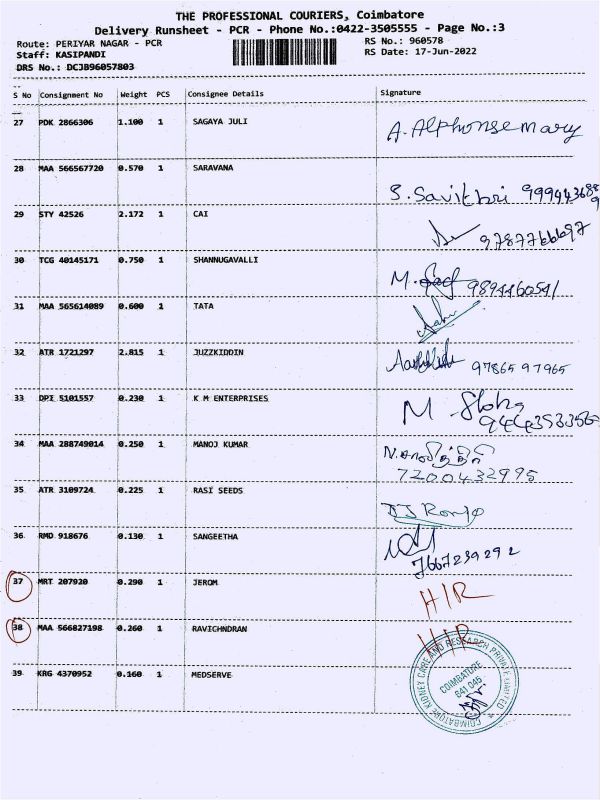 THE PROFESSIONAL COURIERS, Coimbatore
Delivery Runsheet - PCR - Phone No.:0422-3505555 - Page No.:3
Route: PERIYAR NAGAR - PCR RS No.: 960578
Staff: KASIPANDI RS Date: 17-Jun-2022
DRS No.: DCJB96057803
S No Consignment No Weight PCS Consignee Details Signature
27 PDK 2866306 1.100 1 SAGAYA JULI A. Alphonse mary
28 MAA 566567720 0.570 1 SARAVANA
S. Savithri
29 STY 42526 2.172 1 CAI
9787766697
30 TCG 40145171 0.750 1 SHANNUGAVALLI M.
9894460541
31 MAA 565614089 0.600 1 TATA
32 ATR 1721297 2.815 1 JUZZKIDDIN
97865 97965
33 DPI 5101557 0.230 1 K M ENTERPRISES M
34 MAA 288749014 0.250 1 MANOJ KUMAR
7200432995
35 ATR 3109724 0.225 1 RASI SEEDS
36 RMD 918676 0.130 1 SANGEETHA
7667239292
37 MRT 207920 0.290 1 JEROM H/R
38 MAA 566827198 0.260 1 RAVICHNDRAN H/R
39 KRG 4370952 0.160 1 MEDSERVE
COIMBATORE KIDNEY CARE AND RESEARCH PRIVATE LIMITED
COIMBATORE
641 045